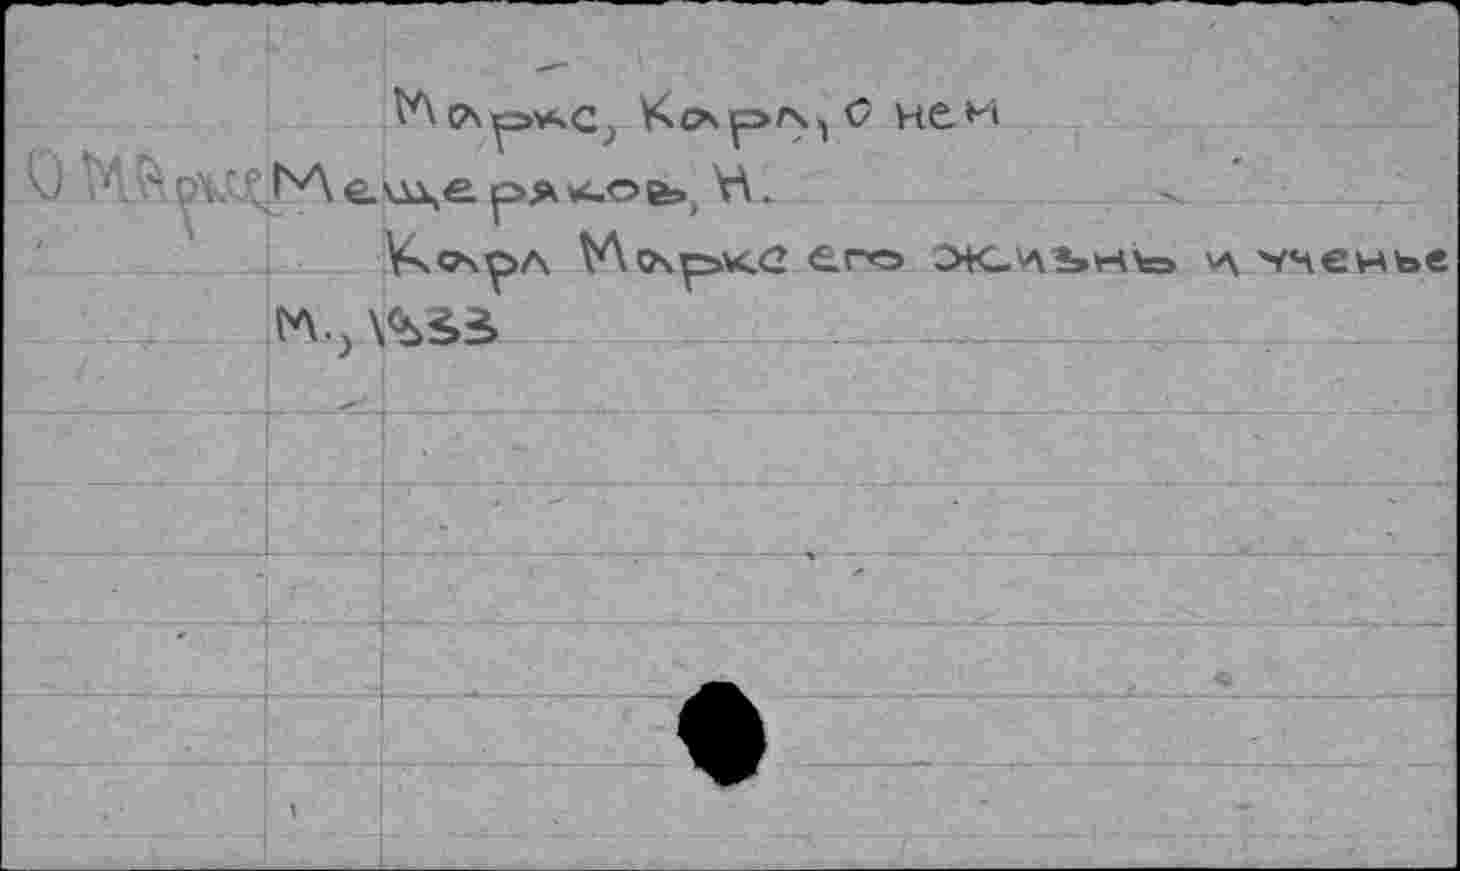 Маркс, Карл, О нем
О Марксе Мещеряков, Н.
Карл Маркс его жизнь и ученье
М., 1933